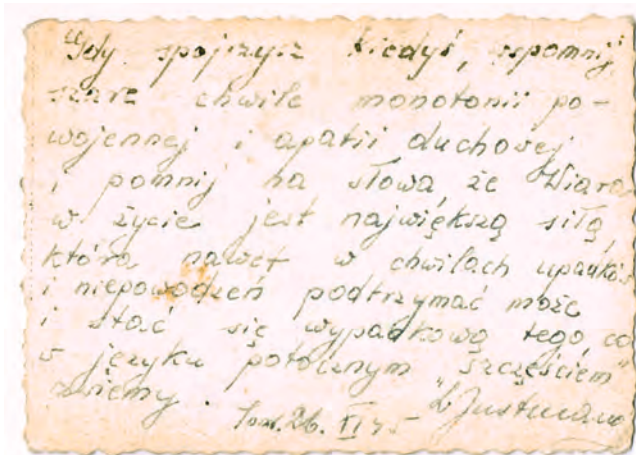 "Gdy spojrzysz kiedyś, wspomnij
szare chwile monotonii po-
wojennej i apatii duchowej
i pomnij na słowa że Wiara
w życie jest największą siłą
która nawet w chwilach upadków
i niepowodzeń podtrzymać może
i stać się wypadkową tego co
w języku potocznym "szczęściem"
zwiemy.
26. XI 45